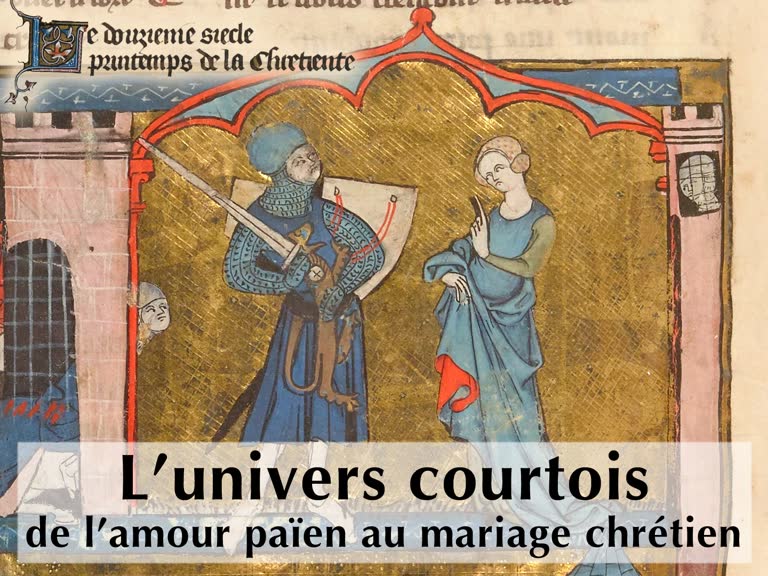 Le douzieme siecle
printemps de la Chretiente
L’univers courtois
de l’amour païen au mariage chrétien